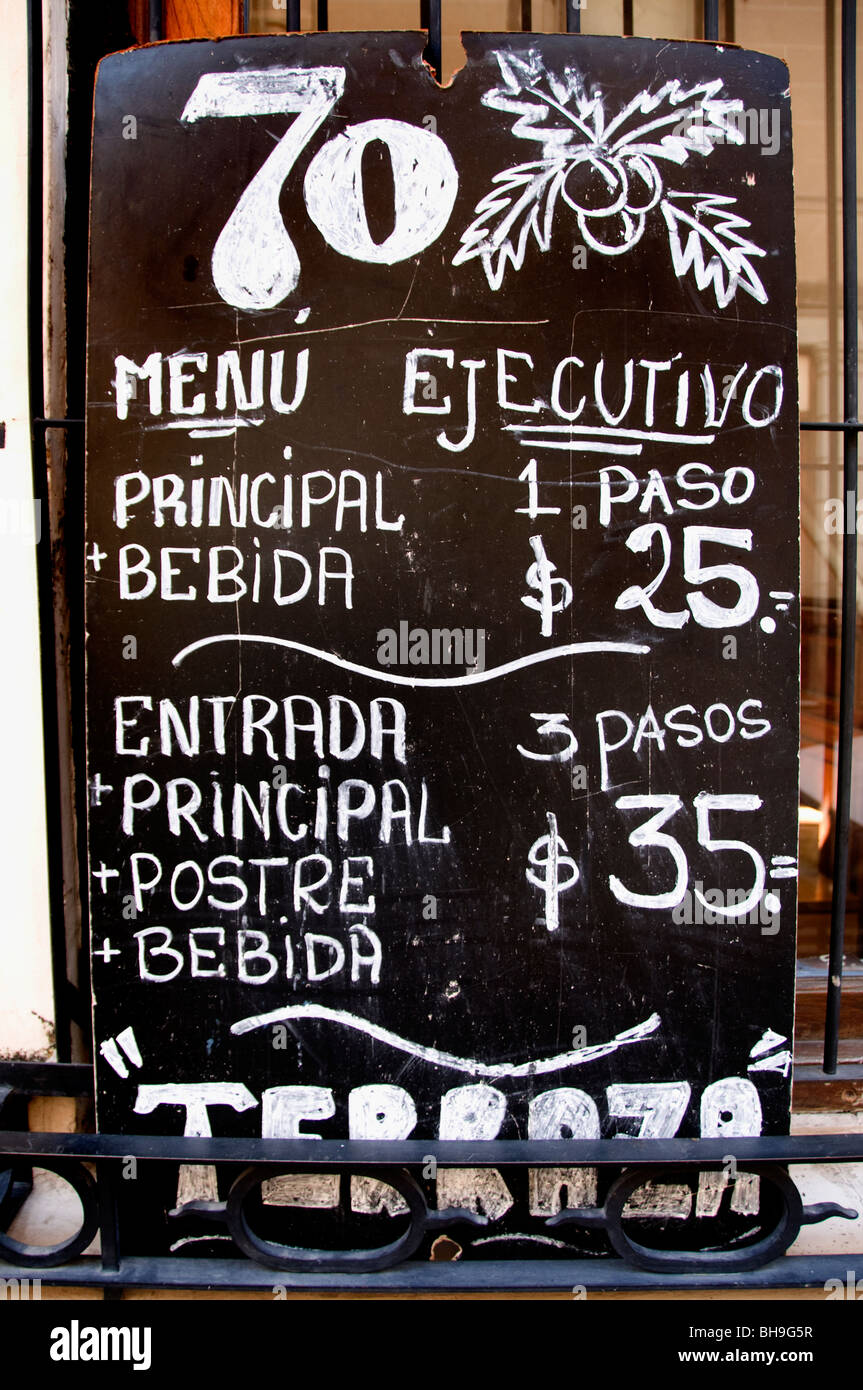 70
MENÚ EJECUTIVO
PRINCIPAL 1 PASO
+ BEBIDA $ 25.=
ENTRADA 3 PASOS
+ PRINCIPAL $ 35.=
+ POSTRE
+ BEBIDA
"TERRAZA"
alamy
Image ID: BH9G5R
www.alamy.com